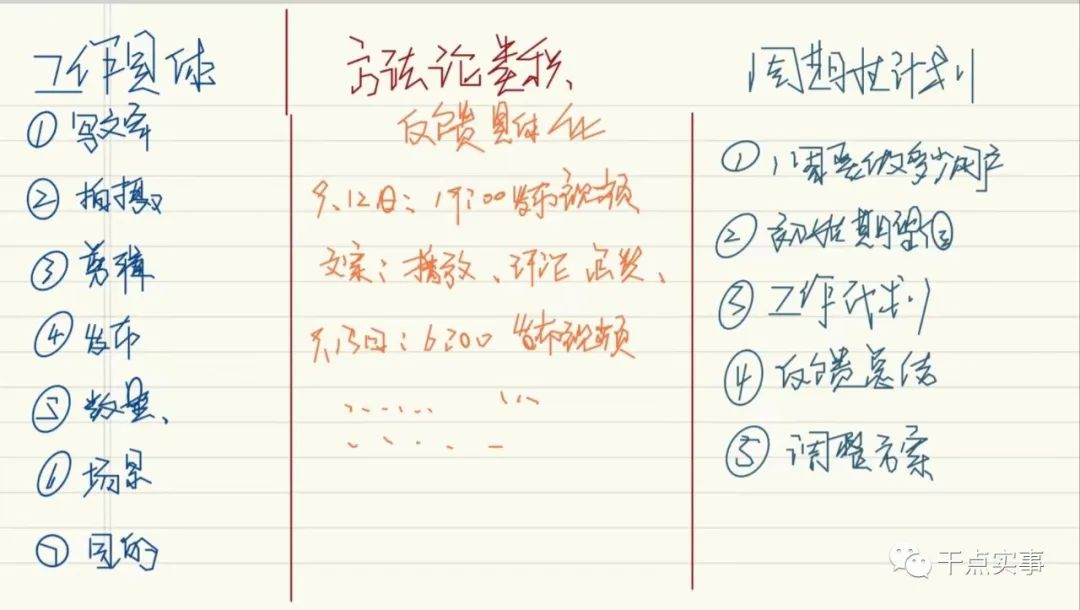 工作具体
① 写文案
② 拍摄
③ 剪辑
④ 发布
⑤ 数量、
⑥ 场景
⑦ 目的
方法论类积、
反馈具体化
5.12日：17:00发布视频
文案：播放、评论 点赞、
5.13日：6:00 发布视频
周期性计划
① 1周要做多少用户
② 初始期望值
③ 工作计划
④ 反馈总结
⑤ 调整方案
干点实事